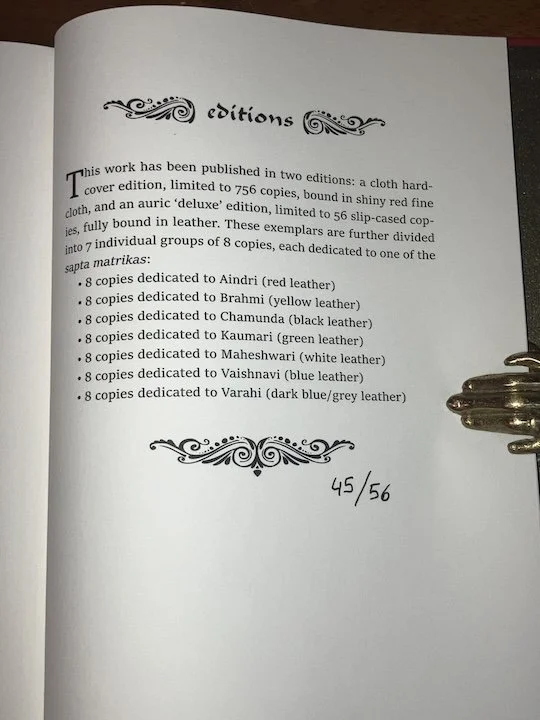 editions
This work has been published in two editions: a cloth hard-
cover edition, limited to 756 copies, bound in shiny red fine
cloth, and an auric ‘deluxe’ edition, limited to 56 slip-cased cop-
ies, fully bound in leather. These exemplars are further divided
into 7 individual groups of 8 copies, each dedicated to one of the
sapta matrikas:
• 8 copies dedicated to Aindri (red leather)
• 8 copies dedicated to Brahmi (yellow leather)
• 8 copies dedicated to Chamunda (black leather)
• 8 copies dedicated to Kaumari (green leather)
• 8 copies dedicated to Maheshwari (white leather)
• 8 copies dedicated to Vaishnavi (blue leather)
• 8 copies dedicated to Varahi (dark blue/grey leather)
45/56